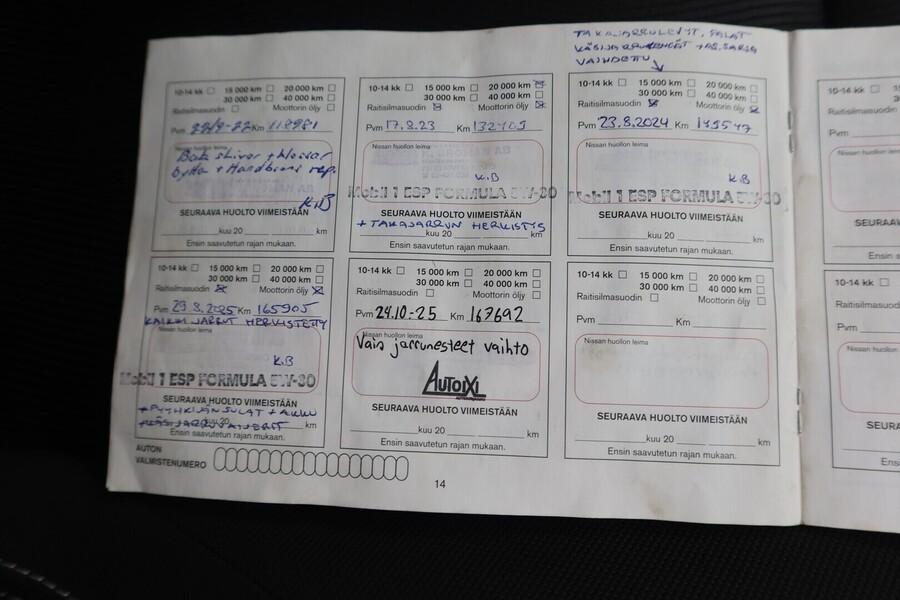 TAKAJARRULEVYT, PALAT
KÄSIJARRUKENGÄT + AS.SARJA
VAIHDETTU
10-14 kk 15 000 km 20 000 km
30 000 km 40 000 km
Raitisilmasuodin Moottorin öljy
Pvm 22/9-22 Km 118981
Nissan huollon leima
Bak skivor + klossar
bytta + Handbroms rep.
K.B
SEURAAVA HUOLTO VIIMEISTÄÄN
kuu 20 km
Ensin saavutetun rajan mukaan.
10-14 kk 15 000 km 20 000 km
30 000 km 40 000 km
Raitisilmasuodin Moottorin öljy
Pvm 17.8.23 Km 132705
K.B
Mobil 1 ESP FORMULA 5W-30
SEURAAVA HUOLTO VIIMEISTÄÄN
+ TAKAJARRUN HERKISTYS
kuu 20 km
Ensin saavutetun rajan mukaan.
10-14 kk 15 000 km 20 000 km
30 000 km 40 000 km
Raitisilmasuodin Moottorin öljy
Pvm 23.8.2024 Km 149547
Nissan huollon leima
K.B
Mobil 1 ESP FORMULA 5W-30
SEURAAVA HUOLTO VIIMEISTÄÄN
kuu 20 km
Ensin saavutetun rajan mukaan.
10-14 kk
Pvm
Nissan huollon leima
SEURAAVA
Ensin s
10-14 kk 15 000 km 20 000 km
30 000 km 40 000 km
Raitisilmasuodin Moottorin öljy
Pvm 29.8.2025 Km 165905
KAIKKI JARRUT HERKISTETTY
Nissan huollon leima
K.B
Mobil 1 ESP FORMULA 5W-30
SEURAAVA HUOLTO VIIMEISTÄÄN
+ PYYHKIJÄNSULAT + AKKU
kuu 20 km
Ensin saavutetun rajan mukaan.
10-14 kk 15 000 km 20 000 km
30 000 km 40 000 km
Raitisilmasuodin Moottorin öljy
Pvm 24.10-25 Km 167692
Nissan huollon leima
Vain jarrunesteet vaihto
AUTOIXI
SEURAAVA HUOLTO VIIMEISTÄÄN
kuu 20 km
Ensin saavutetun rajan mukaan.
10-14 kk 15 000 km 20 000 km
30 000 km 40 000 km
Raitisilmasuodin Moottorin öljy
Pvm Km
Nissan huollon leima
SEURAAVA HUOLTO VIIMEISTÄÄN
kuu 20 km
Ensin saavutetun rajan mukaan.
10-14 kk
Raitisilma
Pvm
Nissan huollon leima
SEURA
Ens
AUTON
VALMISTENUMERO
14